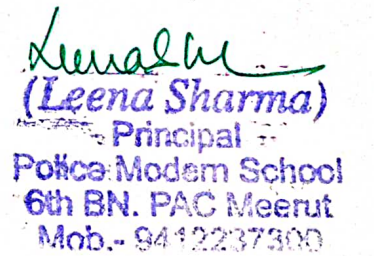 (Leena Sharma)
Principal
Police Modern School
6th BN. PAC Meerut
Mob.- 9412237300